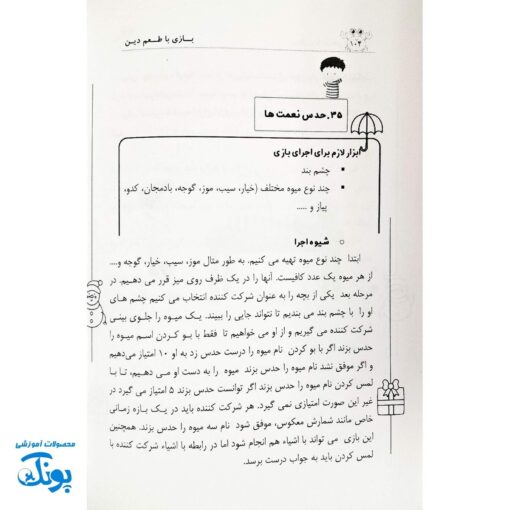 بـازی با طـعم دیـن
۱۰۲
۳۵.حدس نعمت ها
ابزار لازم برای اجرای بازی
▪ چشم بند
▪ چند نوع میوه مختلف (خیار، سیب، موز، گوجه، بادمجان، کدو،
پیاز و .....
□ شیوه اجرا
ابتدا چند نوع میوه تهیه می کنیم. به طور مثال موز، سیب، خیار، گوجه و....
از هر میوه یک عدد کافیست. آنها را در یک ظرف روی میز قرر می دهیم. در
مرحله بعد یکی از بچه را به عنوان شرکت کننده انتخاب می کنیم چشم های
او را با چشم بند می بندیم تا نتواند جایی را ببیند. یک میوه را جلوی بینی
شرکت کننده می گیریم و از او می خواهیم تا فقط با بو کردن اسم میوه را
حدس بزند اگر با بو کردن نام میوه را درست حدس زد به او ۱۰ امتیاز می‌دهیم
و اگر موفق نشد نام میوه را حدس بزند میوه را به دست او می دهیم، تا با
لمس کردن نام میوه را حدس بزند اگر توانست حدس بزند ۵ امتیاز می گیرد در
غیر این صورت امتیازی نمی گیرد. هر شرکت کننده باید در یک بازه زمانی
خاص مانند شمارش معکوس، موفق شود نام سه میوه را حدس بزند. همچنین
این بازی می تواند با اشیاء هم انجام شود اما در رابطه با اشیاء شرکت کننده با
لمس کردن باید به جواب درست برسد.
محصولات آموزشی
پونک